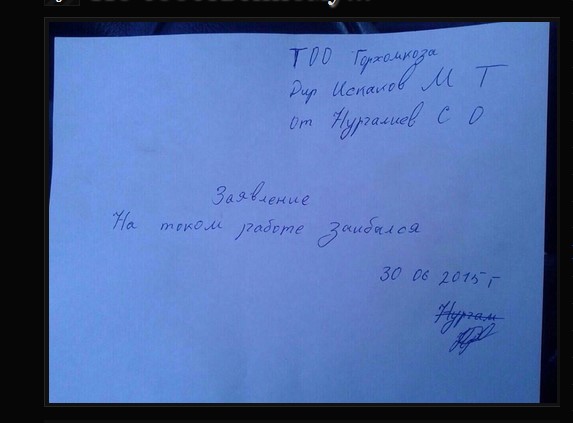 ТОО Горкомхоза
Дир Искаков М Т
от Нургалиев С О
Заявление
На таком работе заибался
30 06 2015 г
Нургам